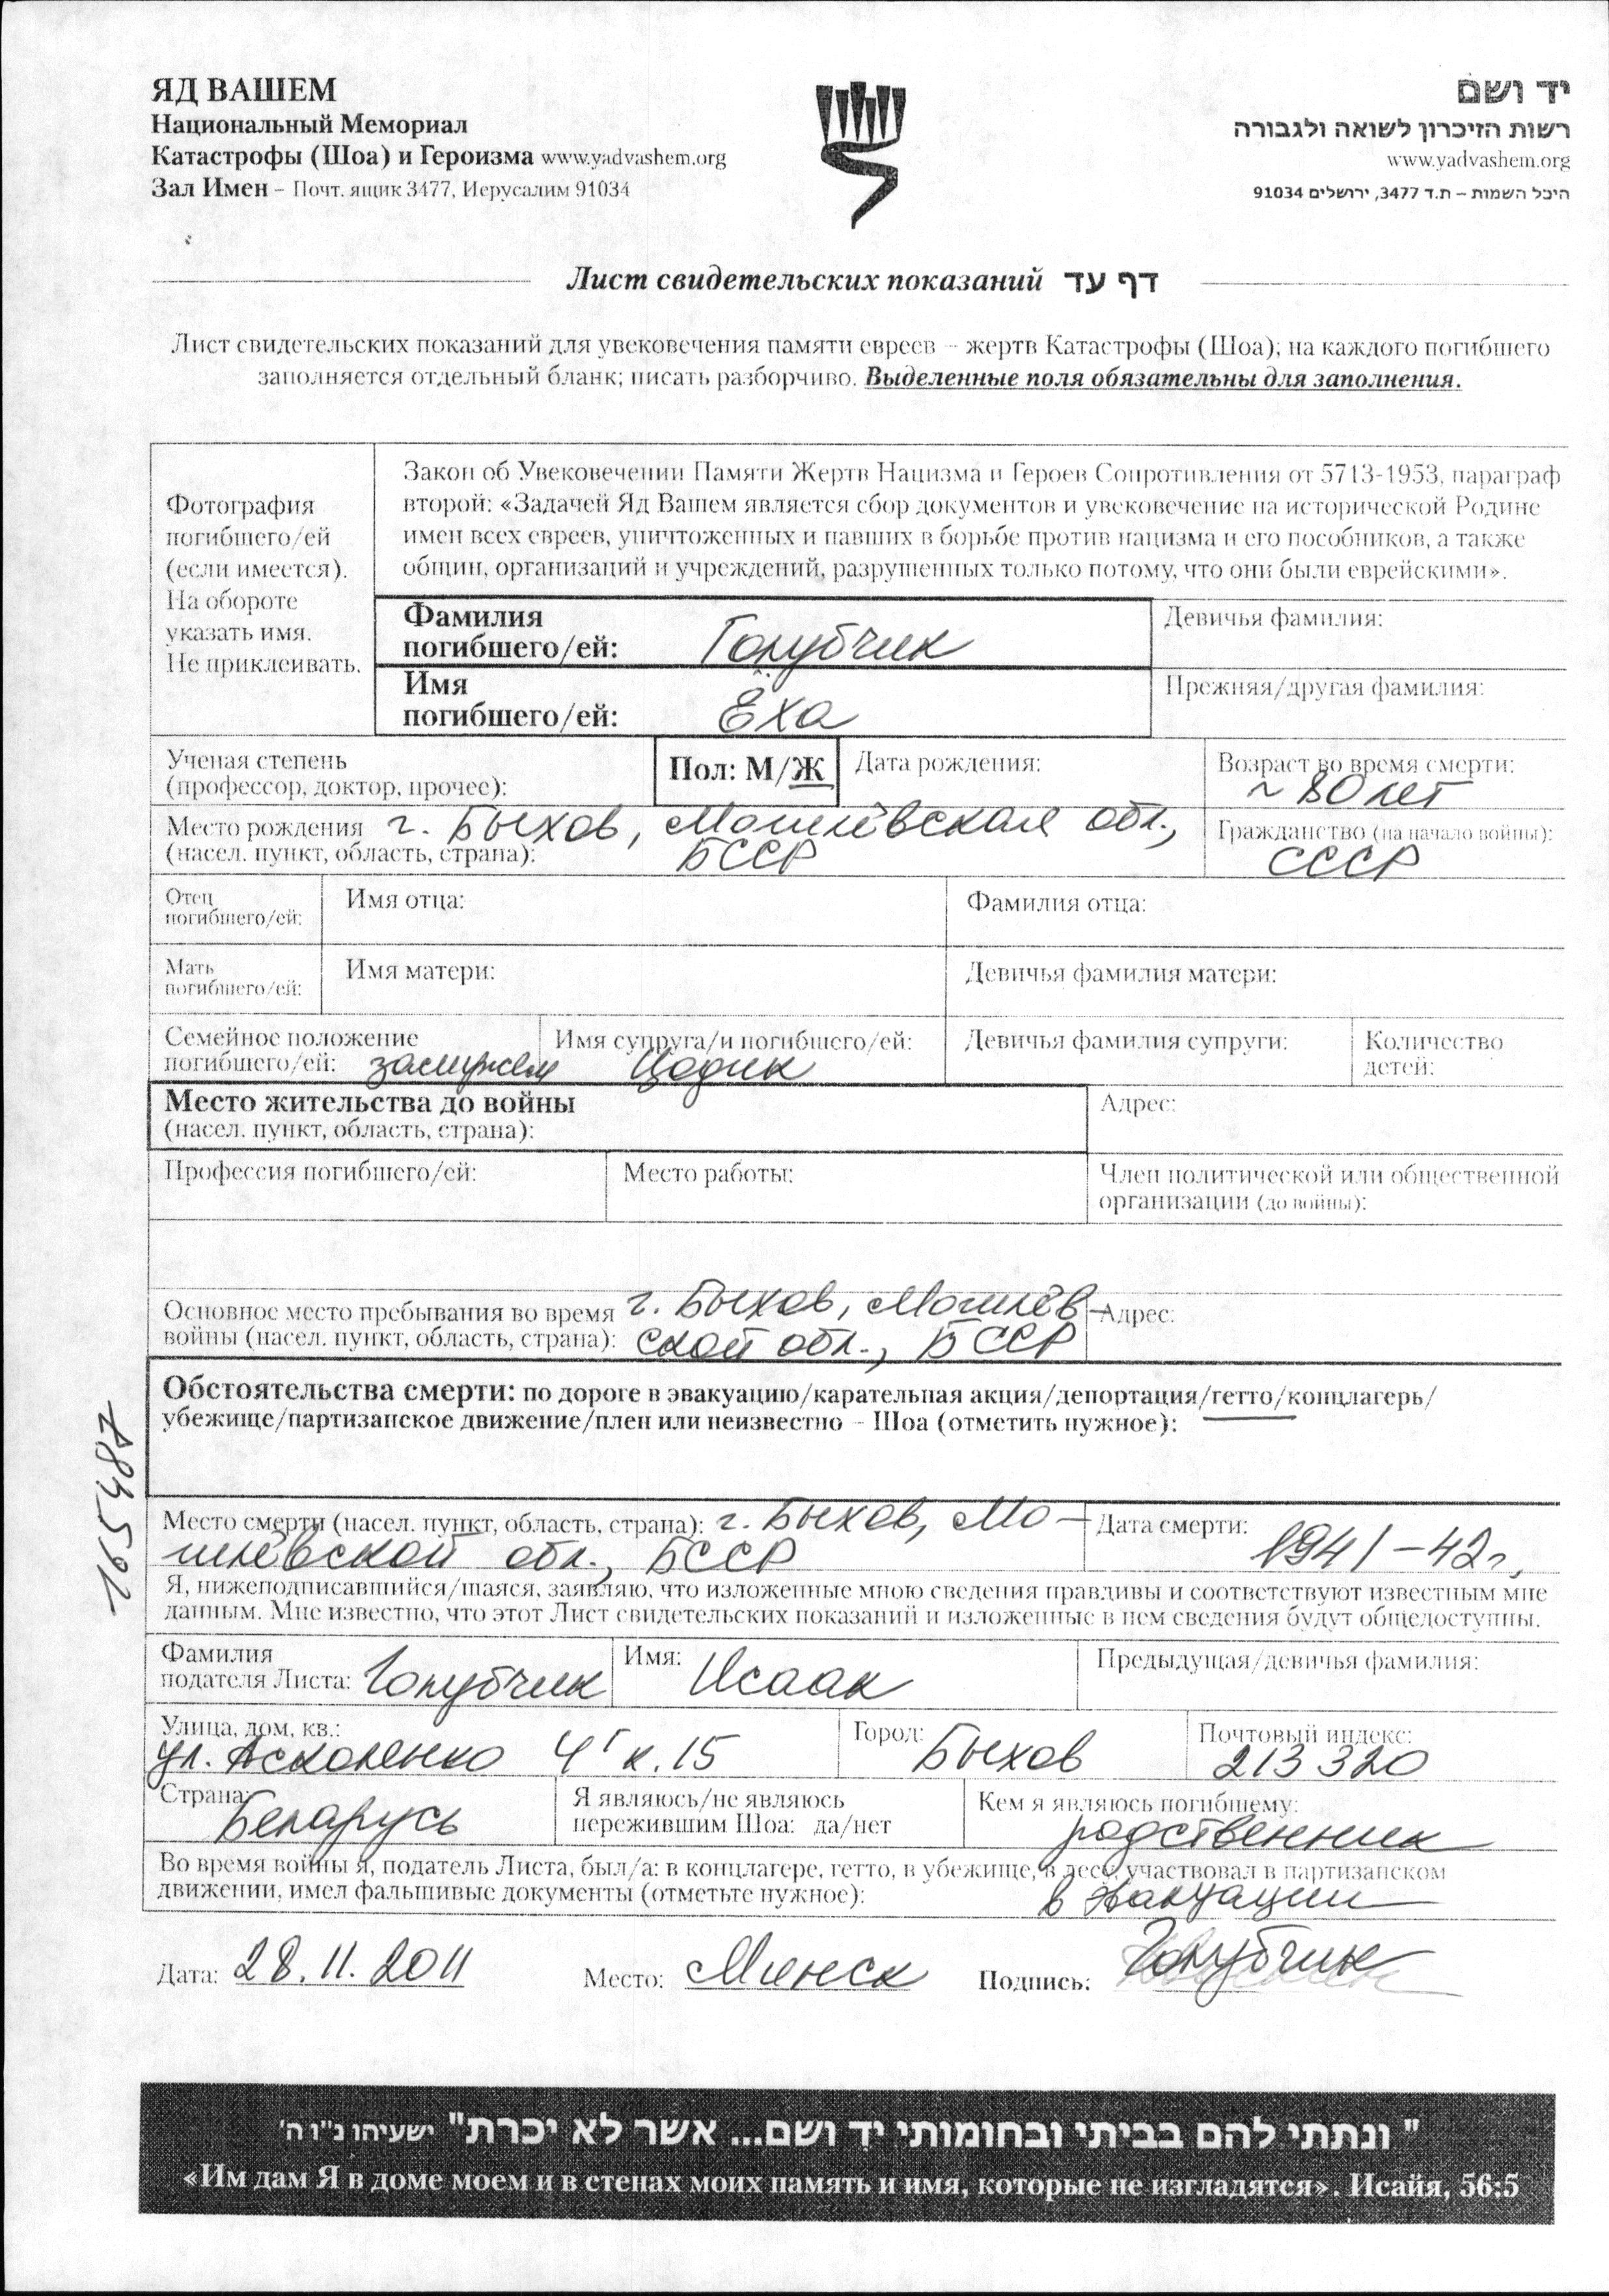 ЯД ВАШЕМ
Национальный Мемориал
Катастрофы (Шоа) и Героизма www.yadvashem.org
Зал Имен – Почт. ящик 3477, Иерусалим 91034
יד ושם
רשות הזיכרון לשואה ולגבורה
www.yadvashem.org
היכל השמות – ת.ד 3477, ירושלים 91034
Лист свидетельских показаний דף עד
Лист свидетельских показаний для увековечения памяти евреев – жертв Катастрофы (Шоа); на каждого погибшего
заполняется отдельный бланк; писать разборчиво. Выделенные поля обязательны для заполнения.
Фотография
погибшего/ей
(если имеется).
На обороте
указать имя.
Не приклеивать.
Закон об Увековечении Памяти Жертв Нацизма и Героев Сопротивления от 5713-1953, параграф
второй: «Задачей Яд Вашем является сбор документов и увековечение на исторической Родине
имен всех евреев, уничтоженных и павших в борьбе против нацизма и его пособников, а также
общин, организаций и учреждений, разрушенных только потому, что они были еврейскими».
Фамилия
погибшего/ей: Голубчик
Девичья фамилия:
Имя
погибшего/ей: Ёха
Прежняя/другая фамилия:
Ученая степень
(профессор, доктор, прочее):
Пол: М/Ж
Дата рождения:
Возраст во время смерти:
~ 80 лет
Место рождения г. Быхов, Могилёвская обл.,
(насел. пункт, область, страна): БССР
Гражданство (на начало войны):
СССР
Отец
погибшего/ей:
Имя отца:
Фамилия отца:
Мать
погибшего/ей:
Имя матери:
Девичья фамилия матери:
Семейное положение
погибшего/ей: замужем
Имя супруга/и погибшего/ей:
Цодик
Девичья фамилия супруги:
Количество
детей:
Место жительства до войны
(насел. пункт, область, страна):
Адрес:
Профессия погибшего/ей:
Место работы:
Член политической или общественной
организации (до войны):
Основное место пребывания во время г. Быхов, Могилёв-
войны (насел. пункт, область, страна): ской обл., БССР
Адрес:
Обстоятельства смерти: по дороге в эвакуацию/карательная акция/депортация/гетто/концлагерь/
убежище/партизанское движение/плен или неизвестно – Шоа (отметить нужное):
165487
Место смерти (насел. пункт, область, страна): г. Быхов, Мо-
гилёвской обл., БССР
Дата смерти:
1941-42г,
Я, нижеподписавшийся/шаяся, заявляю, что изложенные мною сведения правдивы и соответствуют известным мне
данным. Мне известно, что этот Лист свидетельских показаний и изложенные в нем сведения будут общедоступны.
Фамилия
подателя Листа: Голубчик
Имя: Исаак
Предыдущая/девичья фамилия:
Улица, дом, кв.:
ул. Асколенко 4г к. 15
Город: Быхов
Почтовый индекс:
213320
Страна:
Беларусь
Я являюсь/не являюсь
пережившим Шоа: да/нет
Кем я являюсь погибшему:
родственник
Во время войны я, податель Листа, был/а: в концлагере, гетто, в убежище, в лесу, участвовал в партизанском
движении, имел фальшивые документы (отметьте нужное): в эвакуации
Дата: 28.11.2011
Место: Минск
Подпись: Голубчик
" ונתתי להם בביתי ובחומותי יד ושם... אשר לא יכרת" ישעיהו נ"ו ה'
«Им дам Я в доме моем и в стенах моих память и имя, которые не изгладятся». Исайя, 56:5